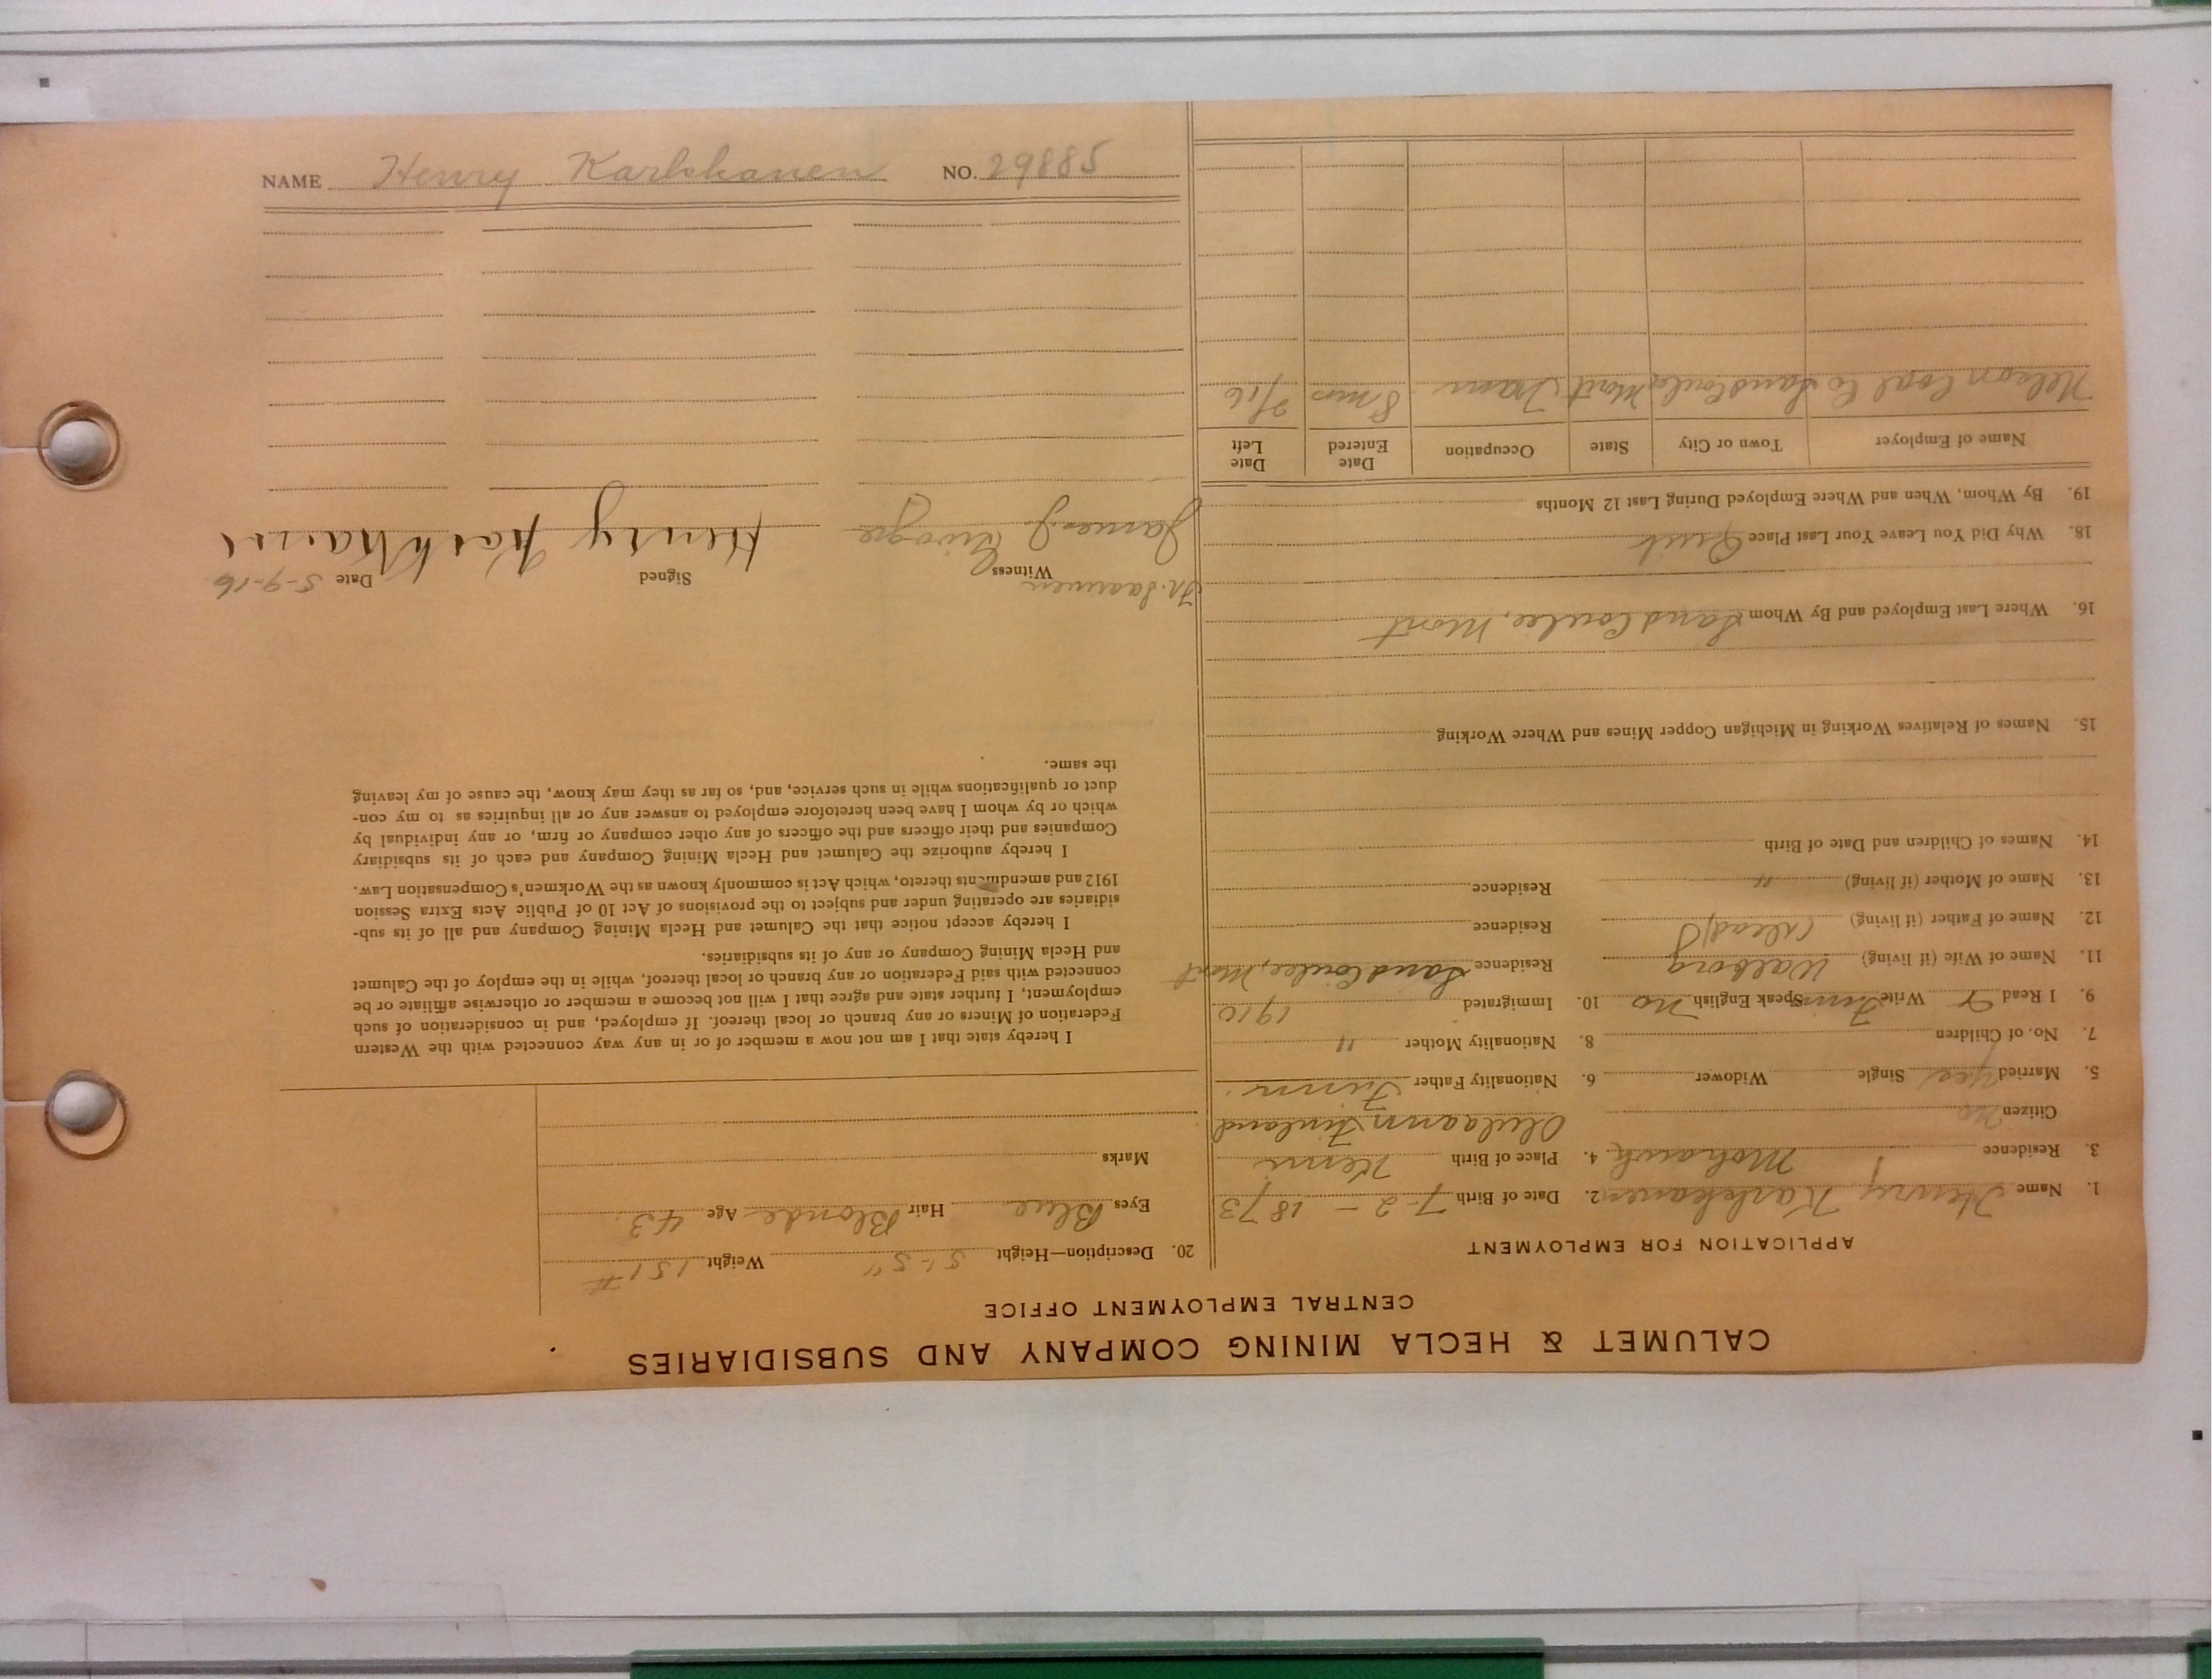 NAME Henry Karlskanen NO. 29885
CALUMET & HECLA MINING COMPANY AND SUBSIDIARIES
CENTRAL EMPLOYMENT OFFICE
APPLICATION FOR EMPLOYMENT
1. Name Henry Karkkanen 2. Date of Birth 7-2-1873
3. Residence Mohawk 4. Place of Birth Kemi
Citizen no Finland
5. Married yes Single Widower 6. Nationality Father Finn
7. No. of Children 8. Nationality Mother "
9. I Read Write Finn Speak English no 10. Immigrated 1910
11. Name of Wife (if living) Walborg Residence Sand Coulee, Mont
12. Name of Father (if living) (dead) Residence
13. Name of Mother (if living) " Residence
14. Names of Children and Date of Birth
15. Names of Relatives Working in Michigan Copper Mines and Where Working
16. Where Last Employed and By Whom Sand Coulee, Mont
18. Why Did You Leave Your Last Place Quit
19. By Whom, When and Where Employed During Last 12 Months
Name of Employer Town or City State Occupation Date Entered Date Left
Nelson Coal Co Sand Coulee Mont Tram 8 mos 2/16
20. Description—Height 5'-5" Weight 151#
Eyes Blue Hair Blonde Age 43
Marks
I hereby state that I am not now a member of or in any way connected with the Western
Federation of Miners or any branch or local thereof. If employed, and in consideration of such
employment, I further state and agree that I will not become a member or otherwise affiliate or be
connected with said Federation or any branch or local thereof, while in the employ of the Calumet
and Hecla Mining Company or any of its subsidiaries.
I hereby accept notice that the Calumet and Hecla Mining Company and all of its sub-
sidiaries are operating under and subject to the provisions of Act 10 of Public Acts Extra Session
1912 and amendments thereto, which Act is commonly known as the Workmen's Compensation Law.
I hereby authorize the Calumet and Hecla Mining Company and each of its subsidiary
Companies and their officers and the officers of any other company or firm, or any individual by
which or by whom I have been heretofore employed to answer any or all inquiries as to my con-
duct or qualifications while in such service, and, so far as they may know, the cause of my leaving
the same.
Witness Signed Date 5-9-16
James J. Henry Karkkainen